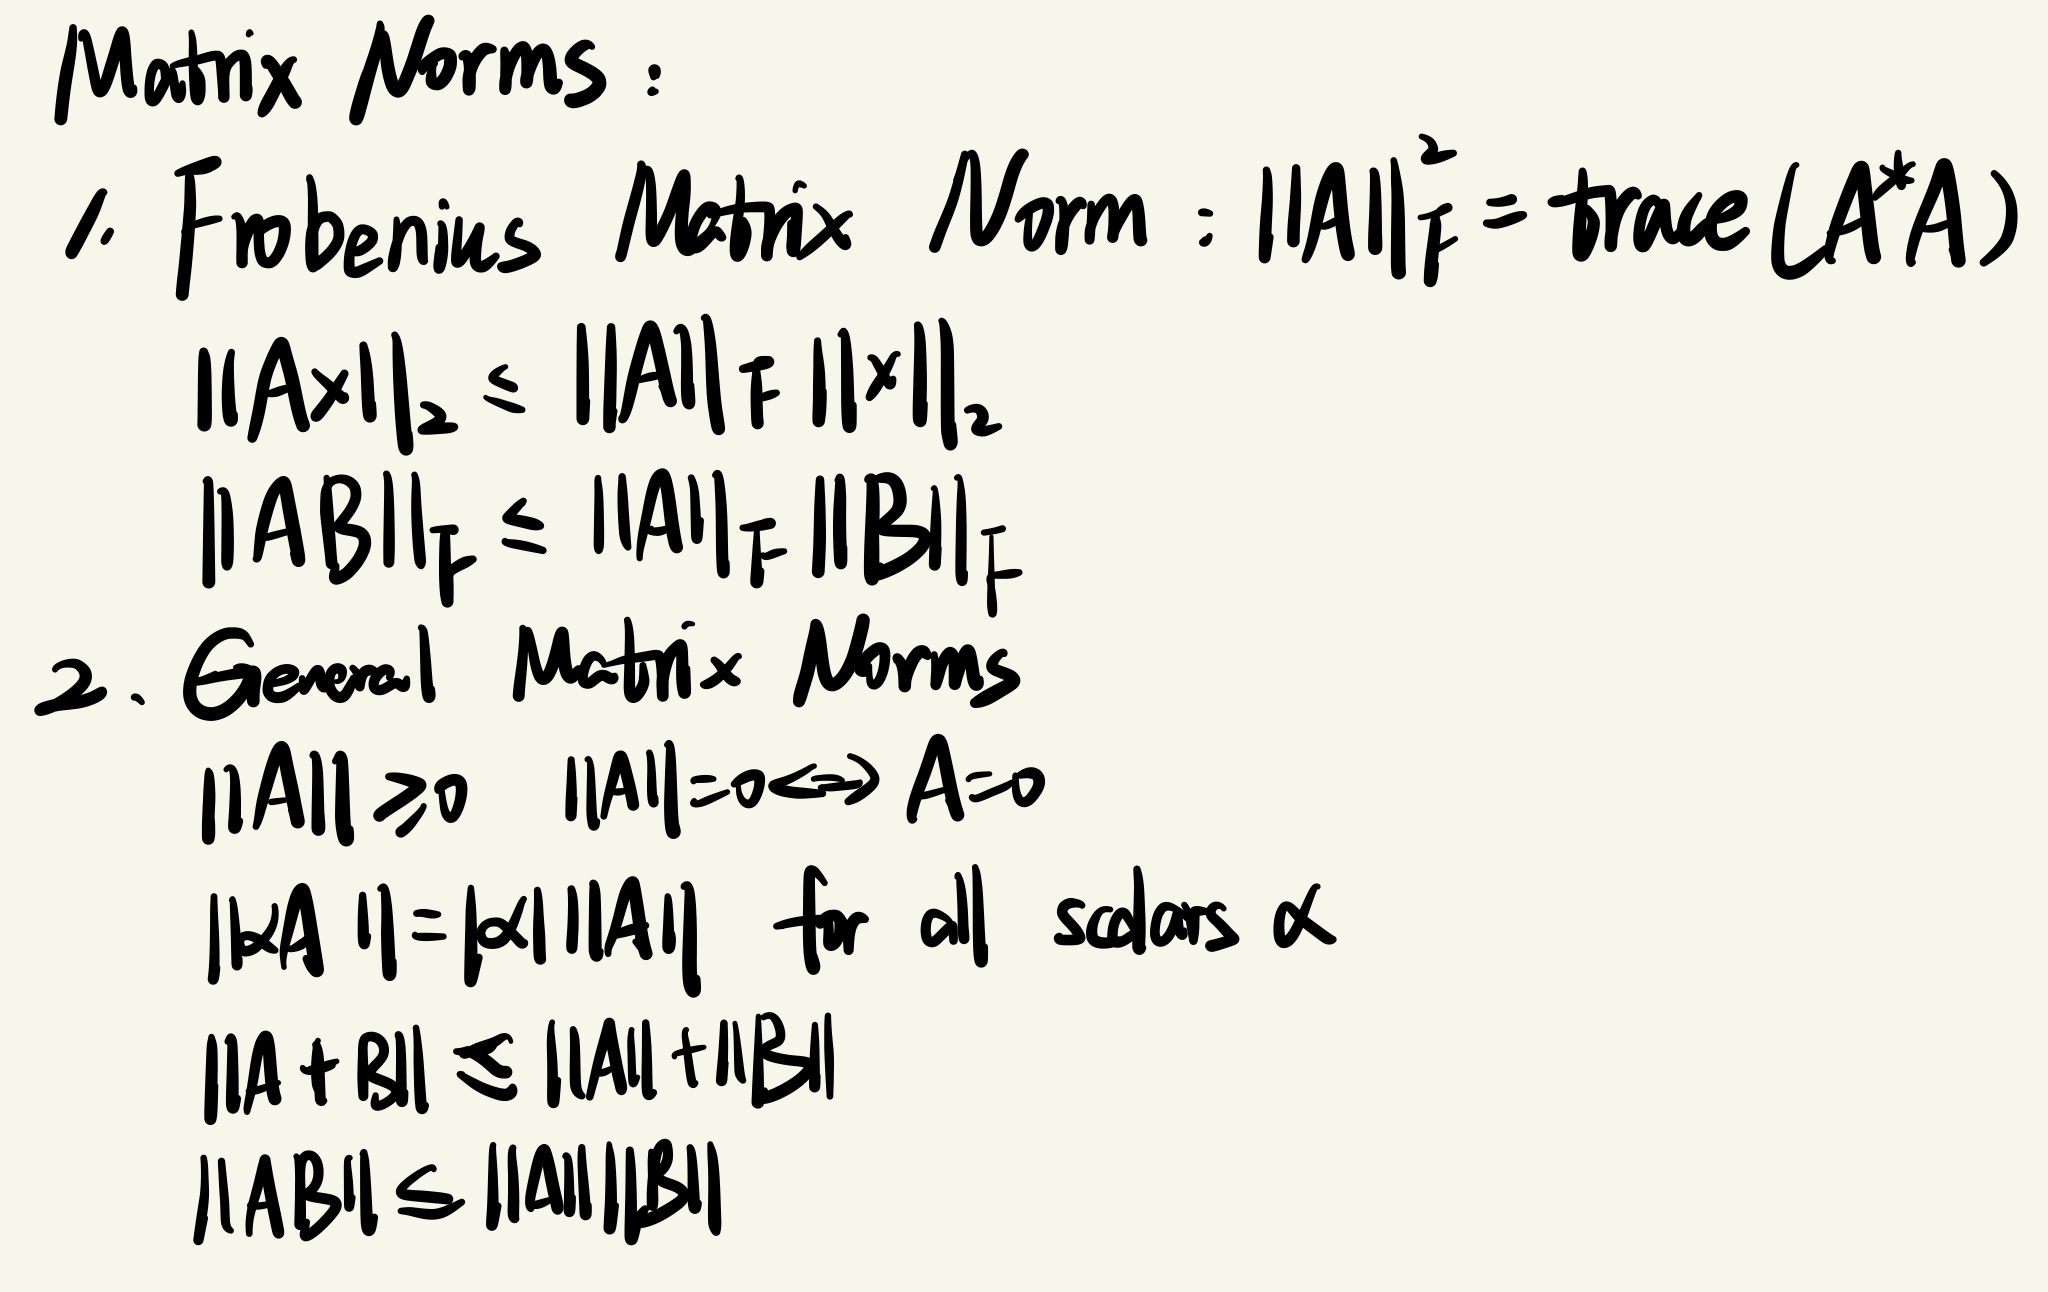 Matrix Norms:
1. Frobenius Matrix Norm: ||A||²_F = trace(A*A)
||Ax||₂ ≤ ||A||_F ||x||₂
||AB||_F ≤ ||A||_F ||B||_F
2. General Matrix Norms
||A|| ≥ 0 ||A|| = 0 ⟺ A = 0
||αA|| = |α| ||A|| for all scalars α
||A + B|| ≤ ||A|| + ||B||
||AB|| ≤ ||A|| ||B||